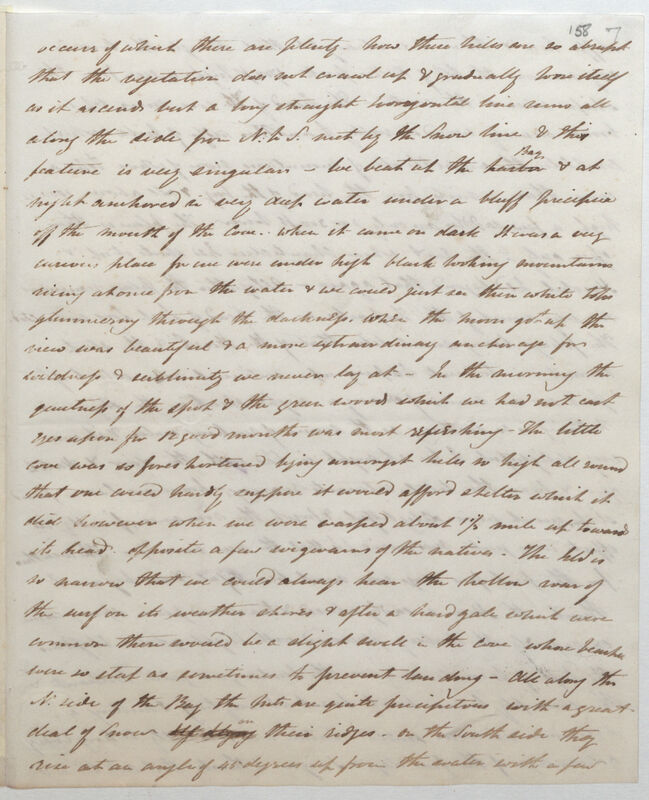 158 7
occurs of which there are plenty. Now these hills are so abrupt
that the vegetation does not crawl up & gradually lose itself
as it ascends but a long straight horizontal line runs all
along the side from N. to S. met by the Snow line & this
feature is very singular – We beat up the harbor Bay & at
night anchored in very deep water under a bluff precipice
off the mouth of the Cove. when it came on dark it was a very
curious place for we were under high black looking mountains
rising at once from the water & we could just see their white tops
glimmering through the darkness, when the moon got up the
view was beautiful & a more extraordinary anchorage for
wildness & sublimity we never lay at – In the morning the
quietness of the spot & the green woods which we had not cast
eyes upon for 12 good months was most refreshing – The little
cove was so foreshortened lying amongst hills so high all round
that one would hardly suppose it would afford shelter which it
did however when we were warped about 1/2 mile up toward
its head opposite a few wigwams of the natives. The Isld is
so narrow that we could always hear the hollow roar of
the surf on its weather shores & after a hard gale which were
common there would be a slight swell in the cove whose beaches
were so steep as sometimes to prevent landing – All along the
N. side of the Bay the Mts are quite precipitous with a great
deal of Snow on their ridges. on the South side they
rise at an angle of 45 degrees up from the water with a few